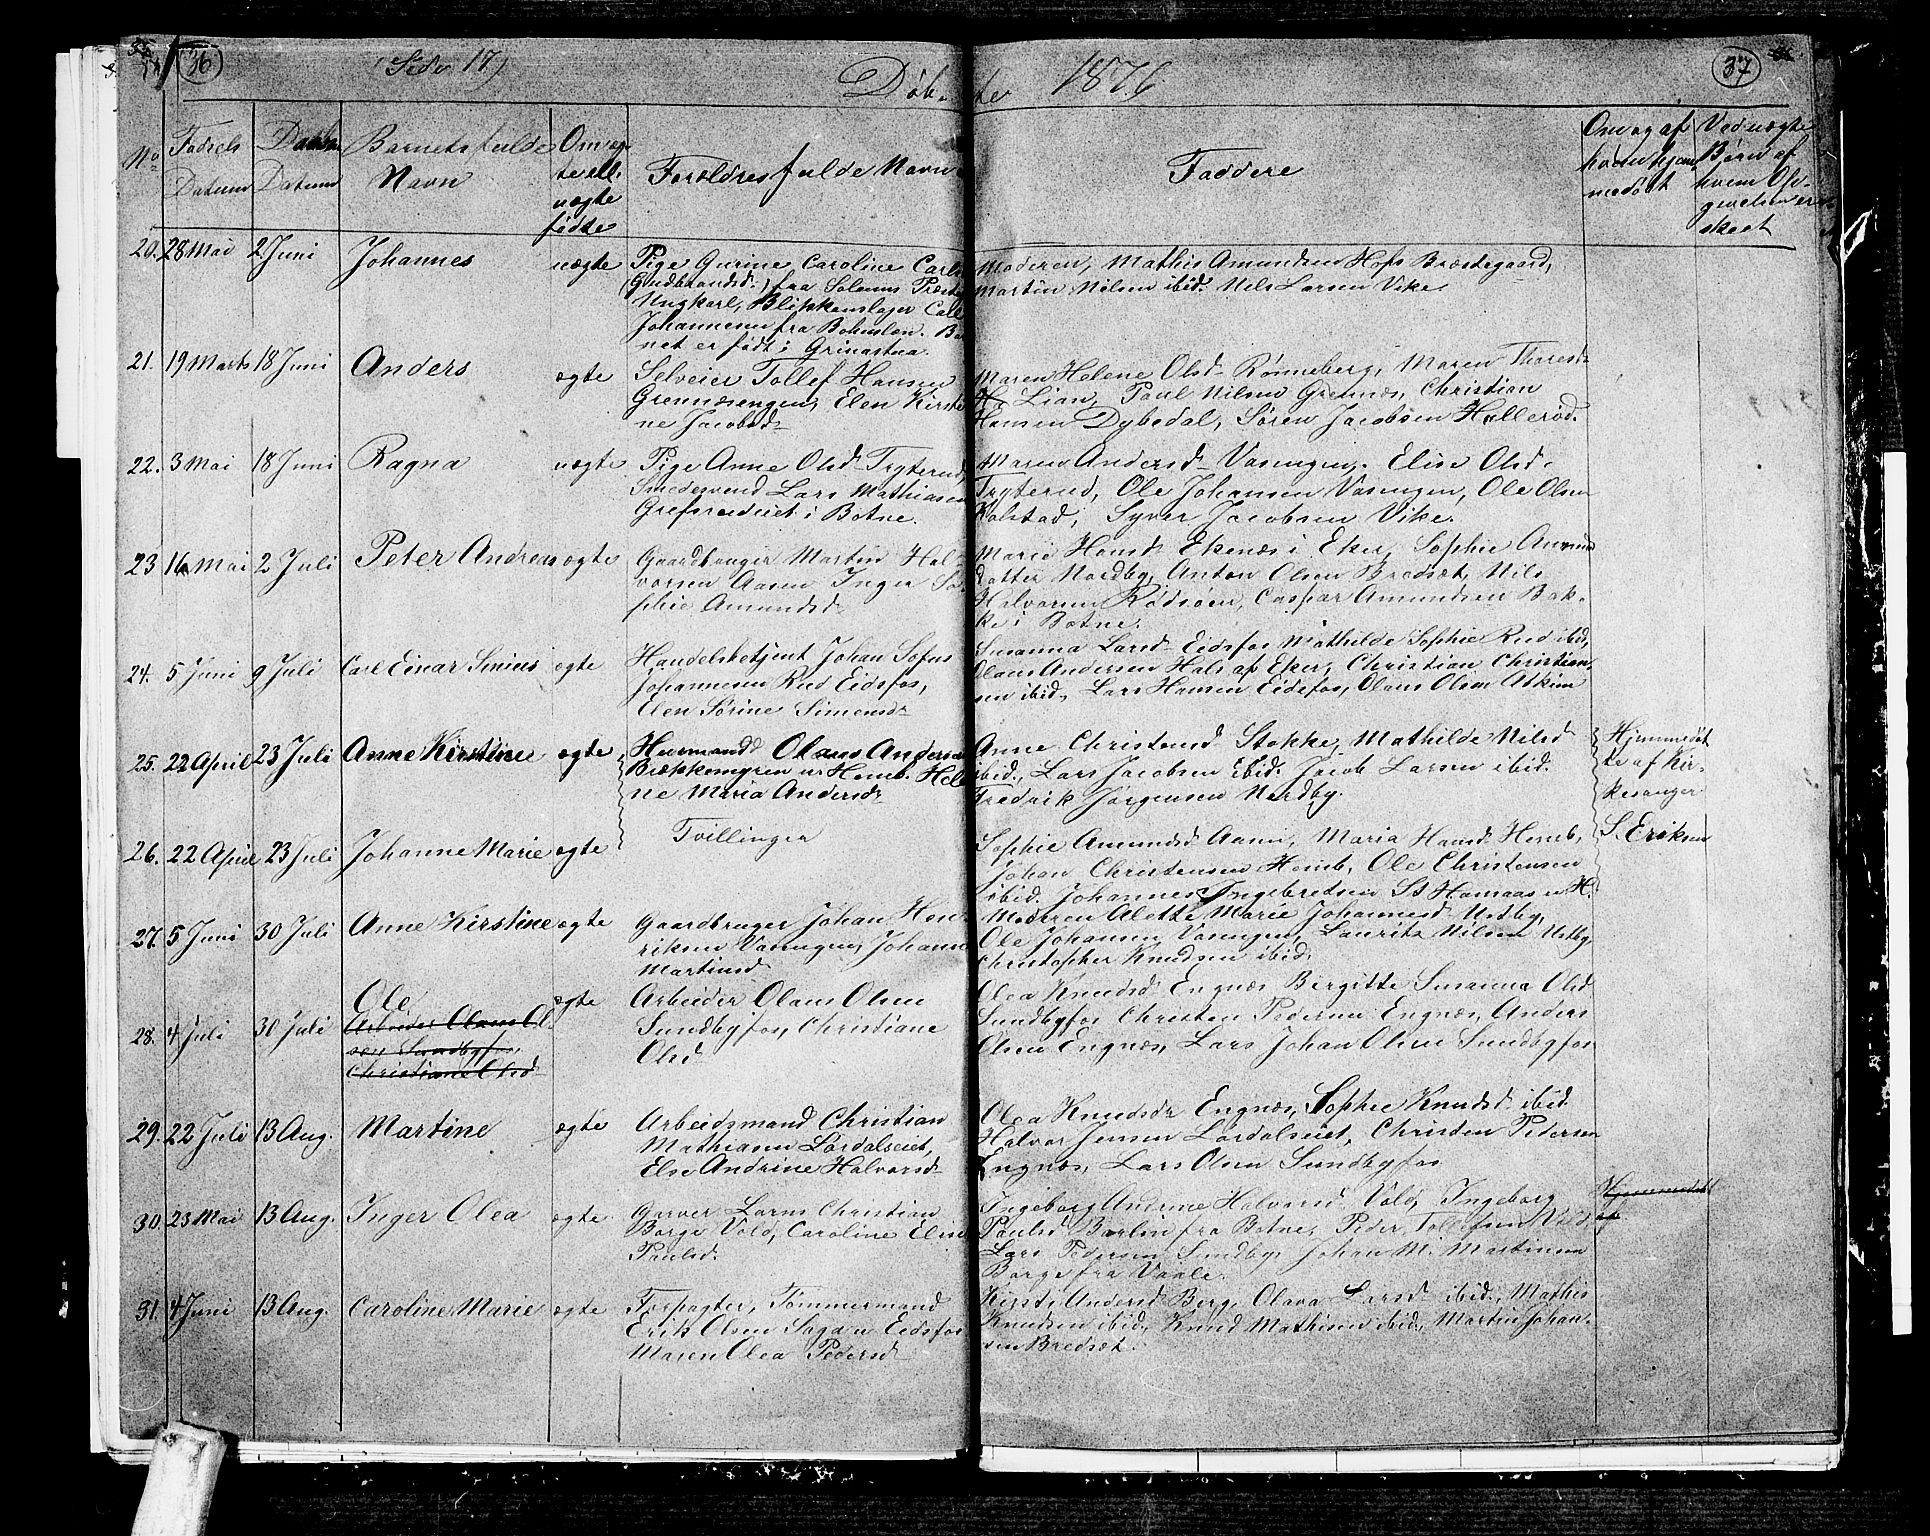 36
(Side 17)
Døbte 1876
37
No
Fødsels Datum
Daabs Datum
Barnets fulde Navn
Om ægte ell. uægte fødte
Forældres fulde Navn
Faddere
Om og af hvem hjemmedøbt
Ved uægte Børn af hvem Opgivelsen er skeet
20. 28 Mai 2 Juni Johannes uægte
Pige Gurine Caroline Carls
(Gudbrandsd.) fra Solums Præste
Ungkarl, Blikkenslager Carl
Johannesen fra Bohuslen. Bar
net er født i
Moderen, Mathis Amundsen Hofs Præstegaard,
Martin Nilsen ibid. Nils Larsen Vike
21. 19 Marts 18 Juni Anders ægte
Selveier Tollef Hansen
Grennesengen, Elen Kirsti
ne Jacobsdr
Maren Helene Olsd Rønneberg, Maren Thoresdr
Lian, Paul Nilsen Grennes, Christian
Hansen Dybedal, Søren Jacobsen Hellerød.
22. 3 Mai 18 Juni Ragna uægte
Pige Anne Olsd Tryterud,
Smedesvend Lars Mathiasen
Grefsrudeiet i Botne.
Maren Andersd Vasengen, Elise Olsd.
Tryterud, Ole Johansen Vasengen, Ole Olsen
Kolstad, Syver Jacobsen Vike.
23 16 Mai 2 Juli Peter Andreas ægte
Gaardbruger Martin Hal
vorsen Aasen, Inger So
phie Amundsd
Marie Hansd Ekenæs i Eker, Sophie Amunds
datter Nordby, Anton Olsen Bredsæt, Nils
Halvorsen Rødsøen, Caspar Amundsen Bak
ke i Botne.
24. 5 Juni 9 Juli Carl Einar Sinius ægte
Handelsbetjent Johan Sofus
Johannesen Rud Eidsfos,
Elen Sørine Simensdr
Susanna Larsd Eidsfos, Mathilde Sophie Rud ibid,
Olaus Andersen Hals af Eker, Christian Christian
sen ibid, Lars Hansen Eidsfos, Olaus Olsen Askim
25. 22 April 23 Juli Anne Kirstine ægte
Huusmand Olaus Andersen
Brekkemyren u. Hemb. Hele
ne Maria Andersdr
Anne Christensd Stokke, Mathilde Nilsd
ibid., Lars Jacobsen ibid. Jacob Larsen ibid.
Fredrik Jørgensen Nordby.
Hjemmedøb
te af Kir-
kesanger
S. Eriksen
Tvillinger
26. 22 April 23 Juli Johanne Marie ægte
Sophie Amundsd Aasen, Maria Hansd Hemb,
Johan Christensen Hemb, Ole Christensen
ibid. Johannes Ingebredsen St Hanaas u H.
27. 5 Juni 30 Juli Anne Kirstine ægte
Gaardbruger Johan Hen
riksen Vasengen, Johanne
Martinsd
Moderen Alette Marie Johannesd Ustby,
Ole Johansen Vasengen, Lauritz Nilsen Ustby
Christopher Knudsen ibid.
28. 4 Juli 30 Juli Ole ægte
Arbeider Olaus Ol
sen Sundbyfos,
Christiane Olsd
Arbeider Olaus Olsen
Sundbyfos, Christiane
Olsd
Olea Knudsd Engnæs Birgitte Susanna Olsd
Sundbyfos Christen Pedersen Engnæs, Anders
Olsen Engnæs, Lars Johan Olsen Sundbyfos
29. 22 Juli 13 Aug. Martine ægte
Arbeidsmand Christian
Mathiasen Lørdalseiet,
Else Andrine Halvorsd
Olea Knudsdr Engnæs, Sophie Knudsd ibid
Halvor Jensen Lørdalseiet, Christen Pedersen
Engnæs, Lars Olsen Sundbyfos
30. 23 Mai 13 Aug. Inger Olea ægte
Garver Lorns Christian
Borge Vold, Caroline Elise
Paulsd.
Ingeborg Andrine Halvorsd Vold, Ingeborg
Paulsd Berlin fra Botne, Peder Tollefsen Vold,
Lars Pedersen Sundby, Johan M. Martinsen
Borge fra Vaale.
Hjemmedøbt
af
31. 4 Juni 13 Aug. Caroline Marie ægte
Forpagter, Tømmermand
Erik Olsen Saga u Eidsfos
Maren Olea Pedersdr
Kirsti Andersd Berg, Olava Larsd ibid, Mathis
Knudsen ibid, Knud Mathisen ibid, Martin Johan-
sen Bredsæt.